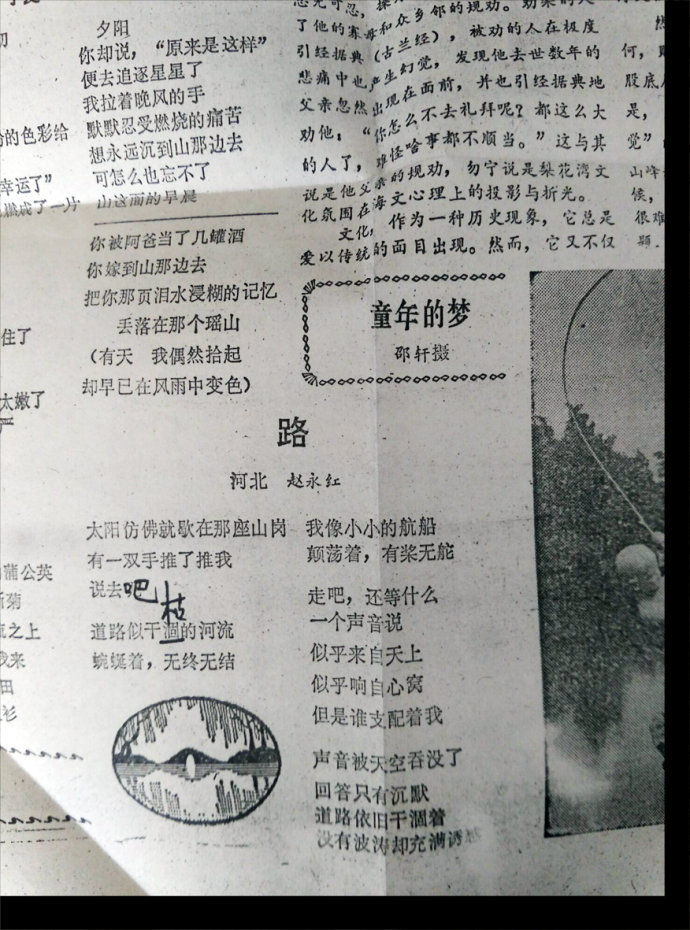 夕阳
你却说，“原来是这样”
便去追逐星星了
我拉着晚风的手
默默忍受燃烧的痛苦
想永远沉到山那边去
可怎么也忘不了
山这面的早晨
你被阿爸当了几罐酒
你嫁到山那边去
把你那页泪水浸糊的记忆
丢落在那个瑶山
（有天　我偶然拾起
却早已在风雨中变色）
的色彩给
幸运了”
燃成了一片
住了
太嫩了
蒲公英
菊
之上
我来
田
衫
了他的寡母和众乡邻的规劝。
引经据典（古兰经），被劝的人在极度
悲痛中也产生幻觉，发现他去世数年的
父亲忽然出现在面前，并也引经据典地
劝他：“你怎么不去礼拜呢？都这么大
的人了，难怪啥事都不顺当。”这与其
说是他父亲的规劝，勿宁说是梨花湾文
化氛围在海文心理上的投影与折光。
文化，作为一种历史现象，它总是
爱以传统的面目出现。然而，它又不仅
何，
股底
是，
觉”
山峰
候，
很难
题．
童年的梦
邵轩摄
路
河北　赵永红
太阳仿佛就歇在那座山岗
有一双手推了推我
说去吧
枯
道路似干涸的河流
蜿蜒着，无终无结
我像小小的航船
颠荡着，有桨无舵
走吧，还等什么
一个声音说
似乎来自天上
似乎响自心窝
但是谁支配着我
声音被天空吞没了
回答只有沉默
道路依旧干涸着
没有波涛却充满诱惑